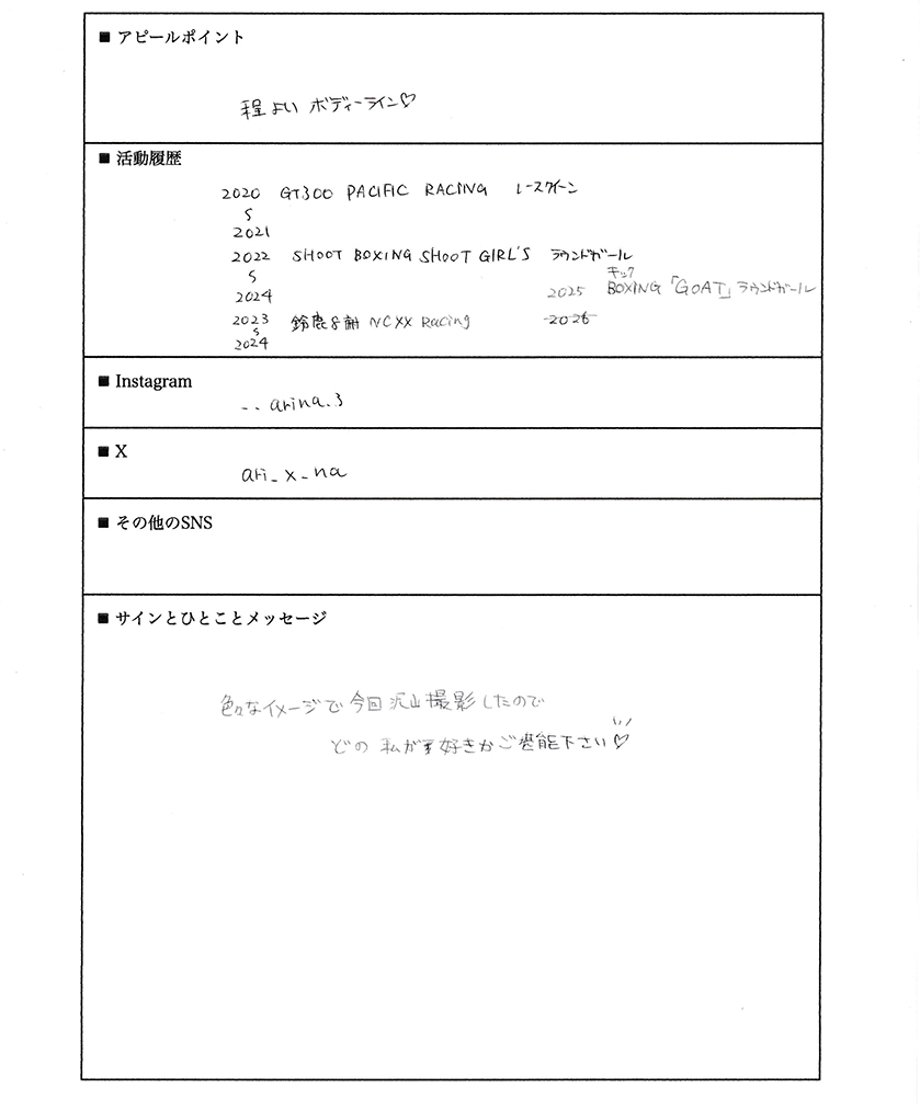 ■ アピールポイント
程よい ボディーライン♡
■ 活動履歴
2020 GT300 PACIFIC RACING レースクイーン
S
2021
2022 SHOOT BOXING SHOOT GIRL'S ラウンドガール
S
2024
2025 キック BOXING「GOAT」ラウンドガール
2023 鈴鹿8耐 NCXX Racing
2026
S
2024
■ Instagram
_ _ arina.3
■ X
ari_x_na
■ その他のSNS
■ サインとひとことメッセージ
色々なイメージで今回沢山撮影したので
どの 私が好きかご堪能下さい♡